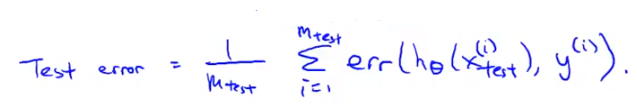 Test error = 1/m_test Σ_{i=1}^{m_test} err(h_θ(x_test^{(i)}), y^{(i)}).